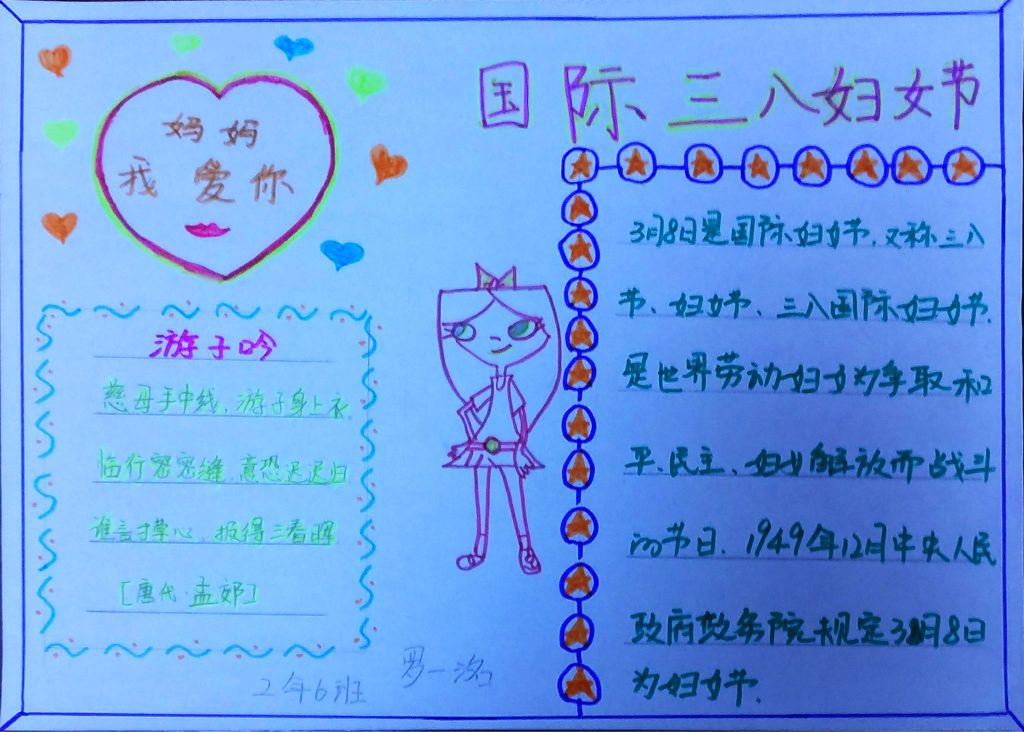 国际三八妇女节
妈妈
我爱你
游子吟
慈母手中线，游子身上衣
临行密密缝，意恐迟迟归
谁言寸草心，报得三春晖
[唐代·孟郊]
3月8日是国际妇女节，又称三八
节、妇女节、三八国际妇女节，
是世界劳动妇女为争取和
平、民主、妇女解放而战斗
的节日，1949年12月中央人民
政府政务院规定3月8日
为妇女节.
2年6班 罗一洺